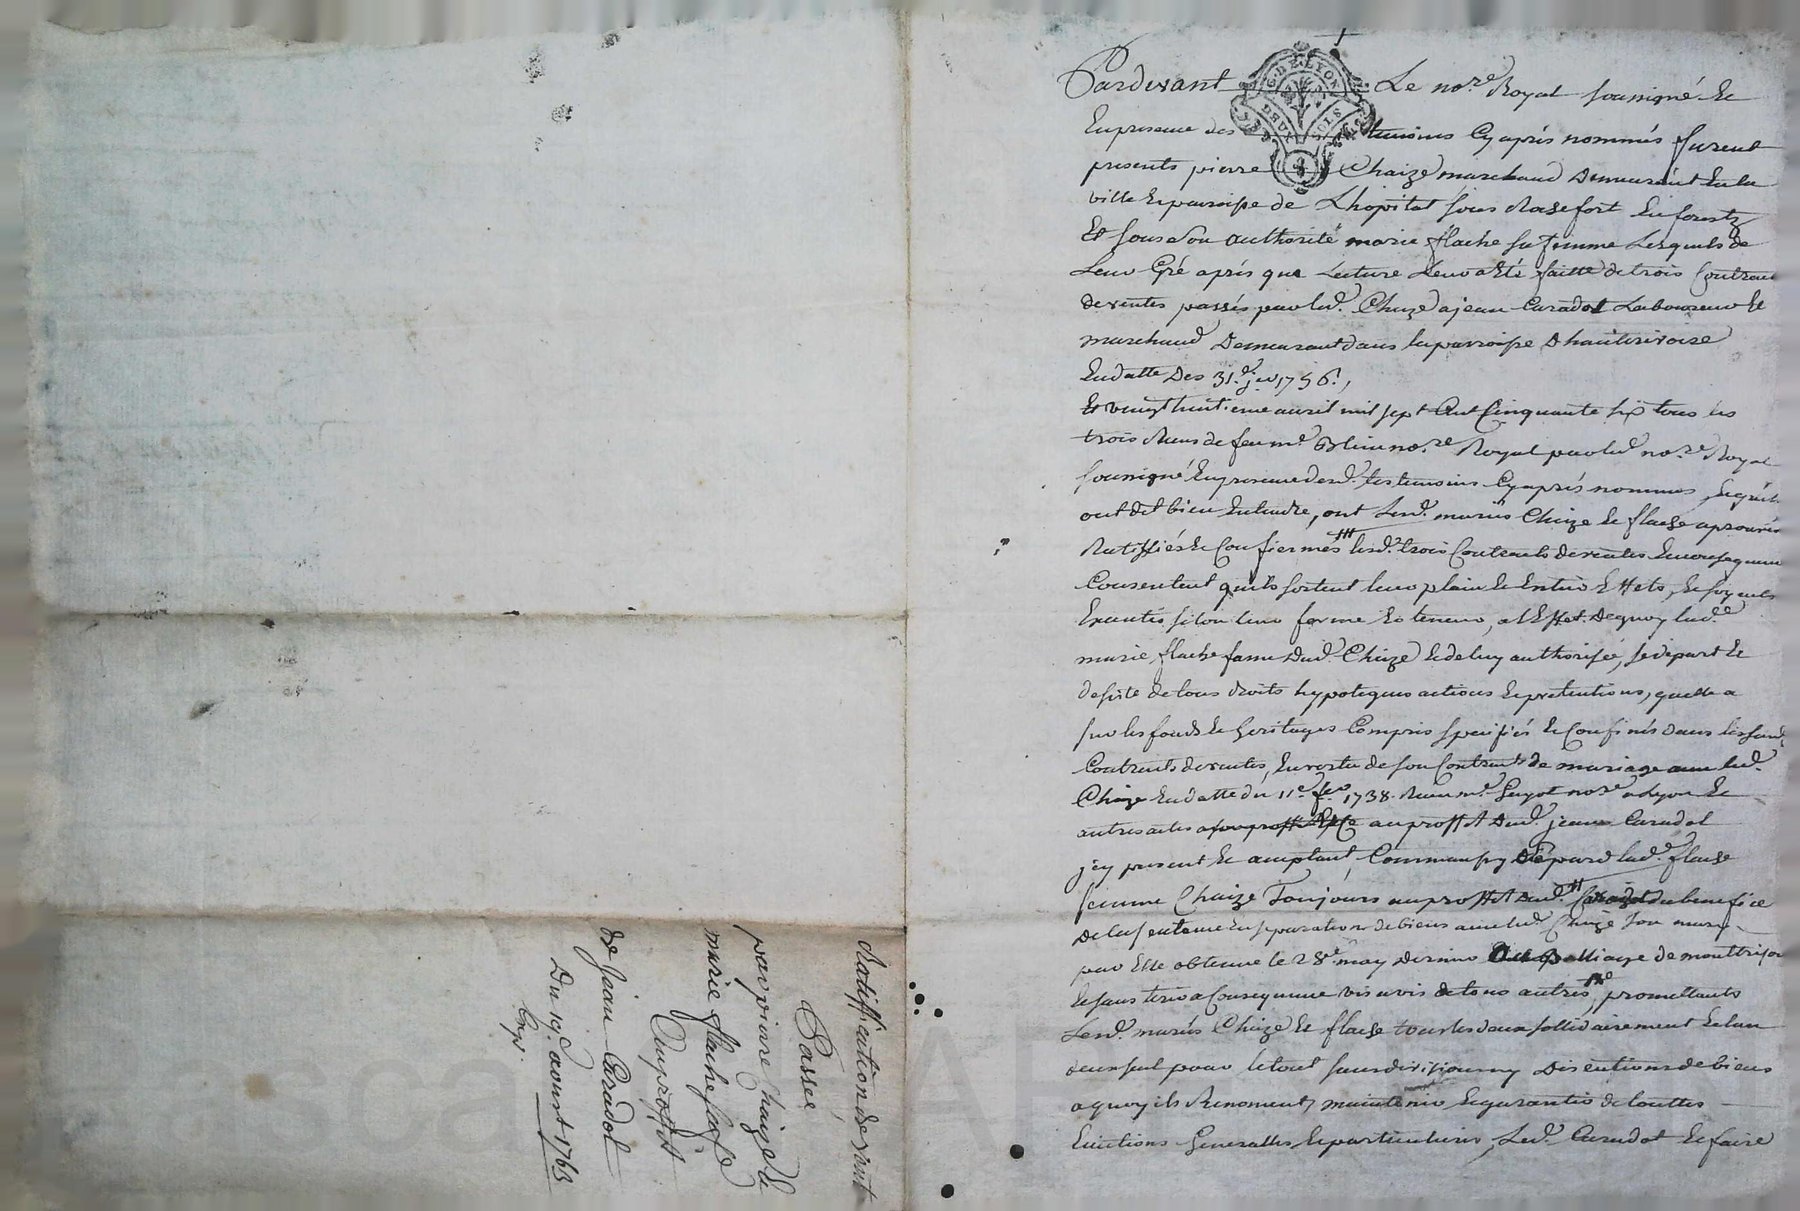 Pardevant Le no.re Royal soussigné Et
En presence des temoins Cy après nommés furent
presents pierre Chaize marchand Demeurant En la
ville Et parroisse de Lhopital sous Rochefort En forestz
Et sous son authorité marie flache sa femme Lesquels de
Leur Gré après que Lecture Leur a Eté faitte de trois Contracts
de ventes passés par led. Chaize a jean Caradot Laboureur Et
marchand Demeurant dans la parroisse Dhauterivoire
En datte Des 31.e j.er 1756.,
Et vingt huitieme avril mil sept Cent Cinquante six tous les
trois Receus de feu m.e Blein no.re Royal par led. no.re Royal
soussigné En presence desd. temoins Cy après nommés, Lesquels
ont dit bien Entendre, ont Lesd. mariés Chaize Et flache aprouvés
Ratiffiés Et Confiermés lesd. trois Contracts de ventes En consequence
Consentent qu'ils sortent leur plain Et Entier Effets, Et soyent
Executés selon leur forme Et teneur, a l'Effet De quoy lad.e
marie flache fame Dud. Chaize Et de luy authorisée, se depart Et
desiste de tous droits hypoteques actions Et pretentions, quelle a
sur les fonds Et heritages Compris specifiés Et Confinés dans les susd.
Contracts de ventes, En vertu de son Contract de mariage avec led.
Chaize En datte du 11.e fev. 1738. Receu m.e Guyot no.re a Lyon Et
autres actes au proffit Dud. jean Caradot
jcy present Et acceptant, Comme aussy Depard lad.e flache
femme Chaize Toujours au proffit Dud. Caradot du benefice
De la sentence En separation de biens avec led. Chaize son mary
par Elle obtenue le 28.e may dernier Au Balliage de montbrison
Et sans tirer a Consequence vis a vis de tous autres, promettants
Lesd. mariés Chaize Et flache tous les deux sollidairement Et lun
deux seul pour le tout sans division ny Discutions de biens
a quoy ils Renoncent, maintenir Et garantir de touttes
Evictions Generalles Et particulieres, Led. Caradot Et faire
Ratiffication de vant
Passée
par pierre Chaize Et
marie flache sa fe
Au proffit
de Jean Caradot
Du 19.e aoust 1763
Exp.